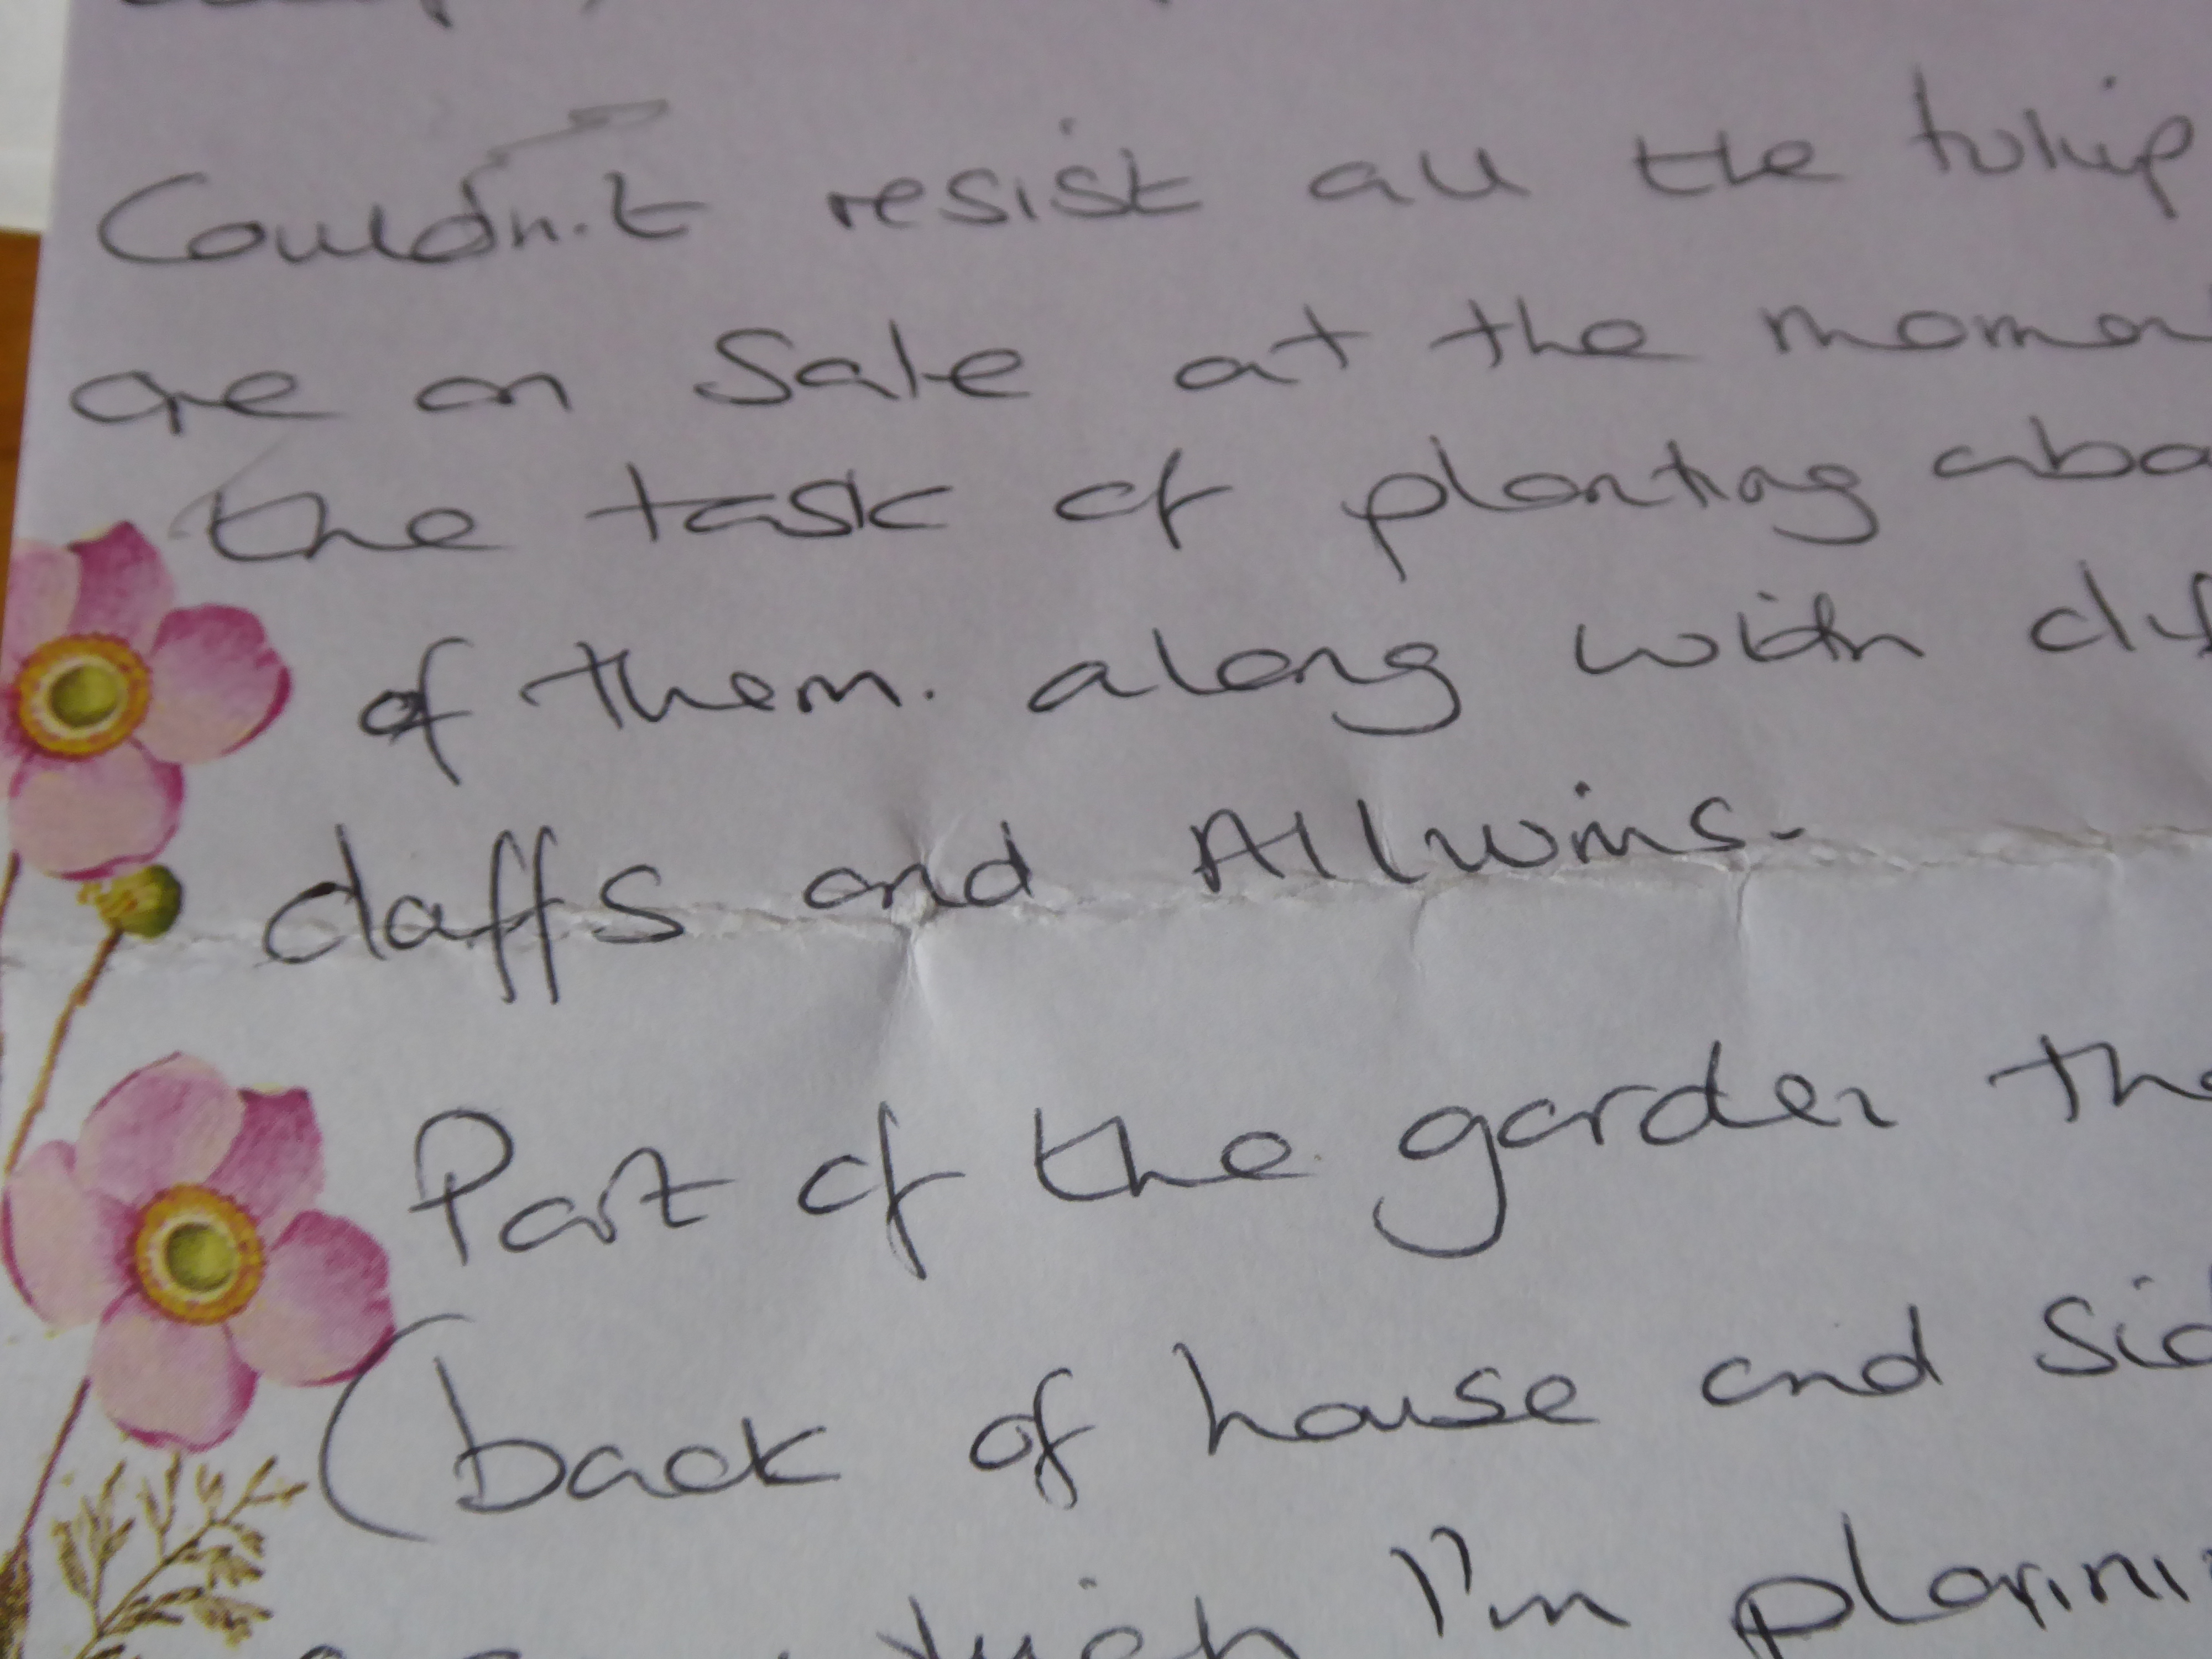 Couldn't resist all the tulip
are on Sale at the momen
the task of planting abo
of them. along with dif
daffs and Alliums.
Part of the garden the
(back of house and sid
which I'm planni